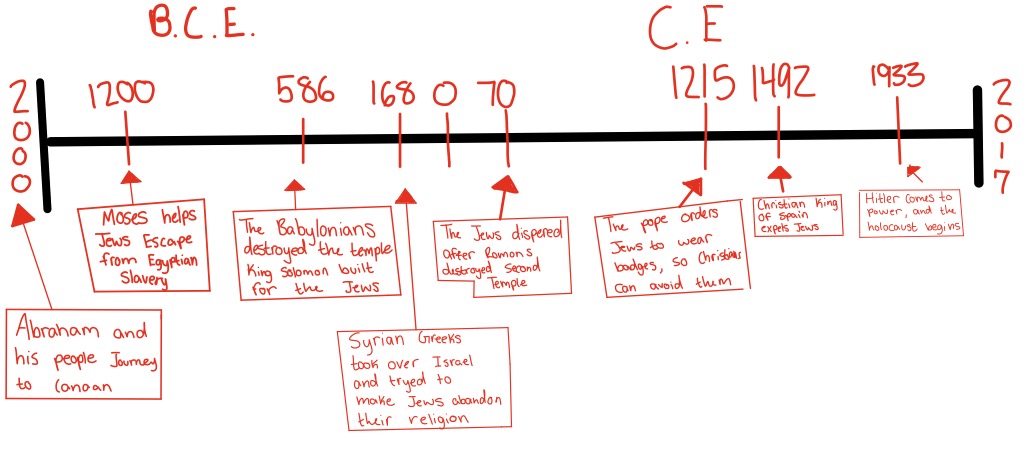 B.C.E.
C.E
2000
1200
586
168
0
70
1215
1492
1933
2017
Moses helps
Jews Escape
from Egyptian
Slavery
The Babylonians
destroyed the temple
King Solomon built
for the Jews
The Jews dispered
after Romans
destroyed second
Temple
The pope orders
Jews to wear
badges, so Christians
can avoid them
Christian King
of Spain
expels Jews
Hitler comes to
power, and the
holocaust begins
Abraham and
his people Journey
to Canaan
Syrian Greeks
took over Israel
and tryed to
make Jews abandon
their religion